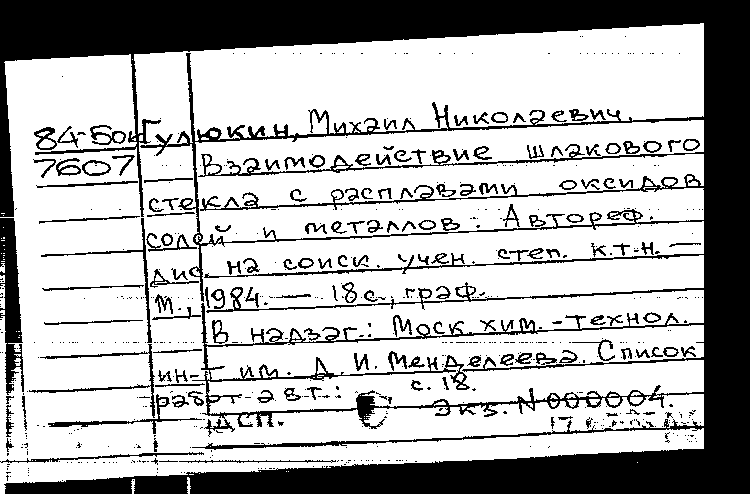 84-5ок Гулюкин, Михаил Николаевич.
7607 Взаимодействие шлакового
стекла с расплавами оксидов
солей и металлов: Автореф.
дис. на соиск. учен. степ. к.т.н. —
М., 1984. — 18 с., граф.
В надзаг.: Моск. хим.-технол.
ин-т им. Д. И. Менделеева. Список
работ авт.: с. 18.
ДСП. Экз. N 000004.